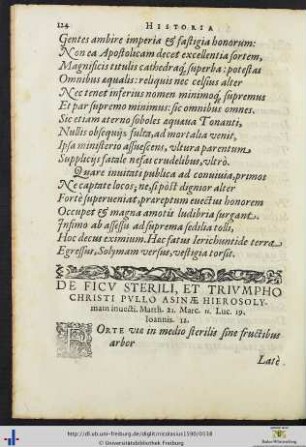 124 HISTORIA
Gentes ambire imperia & fastigia honorum:
Non ea Apostolicam decet excellentia sortem,
Magnificis titulis cathedraq́; superba: potestas
Omnibus aequalis: reliquis nec celsius alter
Nec tenet inferius nomen minimoq́; supremus
Et par supremo minimus: sic omnibus omnes.
Sic etiam aterno soboles aquaua Tonanti,
Nullis obsequijs fulta, ad mortalia venit,
Ipsa ministerio assuescens, vltura parentum
Supplicijs fatale nefas crudelibus, vltrò.
Quare inuitati publica ad conuiuia, primos
Ne captate locos; ne, si pòst dignior alter
Fortè superueniat, praereptum euectus honorem
Occupet & magna amotis ludibria surgant.
Infimo ab assessu ad suprema sedilia tolli,
Hoc decus eximium. Hac fatus Ierichuntide terra
Egressus, Solymam versus, vestigia torsit.
DE FICV STERILI, ET TRIVMPHO
CHRISTI PVLLO ASINÆ HIEROSOLY-
mam inuecti. Matth. 21. Marc. 11. Luc. 19.
Ioannis. 12.
FORTE viae in medio sterilis sine fructibus
arbor
Latè
http://dl.ub.uni-freiburg.de/diglit/nicolausius1590/0138
© Universitätsbibliothek Freiburg